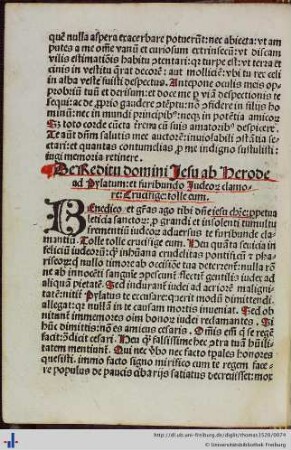 quē nulla aspera exacerbare potuerūt: nec abiecta: vt am
putes a me om̄e vanū et curiosum extrinsecū: vt discam
vilis estimatiōis habitu ptentari: qr turpe est: vt terra et
cinis in vestitu q̄rat decorē: aut molliciē: vbi tu rex celi
in alba veste fuisti despectus. Antepone oculis meis op
probriū tuū et derisum: et doce me p viā despectionis te
sequi: ac de pprio gaudere ptēptu: nō pfidere in filijs ho
minū: nec in mundi principibꝰ: necꝫ in potētia amicor
Sꝫ toto corde cūcta terrena cū suis amatoribꝰ despicere.
Te aūt dn̄m salutis mee auctorē: inuiolabili pstātia se
ctari: et quantas contumelias, p me indigno sustulisti:
iugi memoria retinere.
De Reditu domini Jesu ab Herode
ad Pylatum: et furibundo Judeoꝝ clamo
re: Crucifige: tolle eum.
BEnedico et gr̄as ago tibi dn̄e iesu ch̄re: ppetua
leticia sanctoꝝ: p grandi et insolenti tumultu
irruentiū iudeoꝝ aduersus te furibunde cla
mantiū. Tolle tolle crucifige eum. Heu quāta seuicia in
felicū iudeoꝝ: q̄ inhūana crudelitas pontificū et pha
riseoꝝ: qͥ nullo timore ab occisiōe tua deterrent: nulla rō
ne ab innocētī sanguinis opessiōe flectunt
aliquā pietatē. Sed indurant iudei ad acriorē malignī
tatē: nitit Pylatus te excusare: querit modū dimittendi
allegat: qꝛ nullā in te causam mortis inueniat. Sed ob
nituunt immemores oīm bonoꝝ iudei reclamantes. Si
hūc dimittis: nō es amicus cesaris. Om̄is em̄ q se regē
facit: ptradicit cesari. Heu qͫ falsissime hec ptra tuā hūili
tatem mentiunt. Qui nec vbo nec facto tpales honores
quesisti. immo facto signo mirifico cum te regem face
re populus de paucis cibarijs satiatus decreuisset: mox
http://dl.ub.uni-freiburg.de/diglit/thomas1520/0074
© Universitätsbibliothek Freiburg